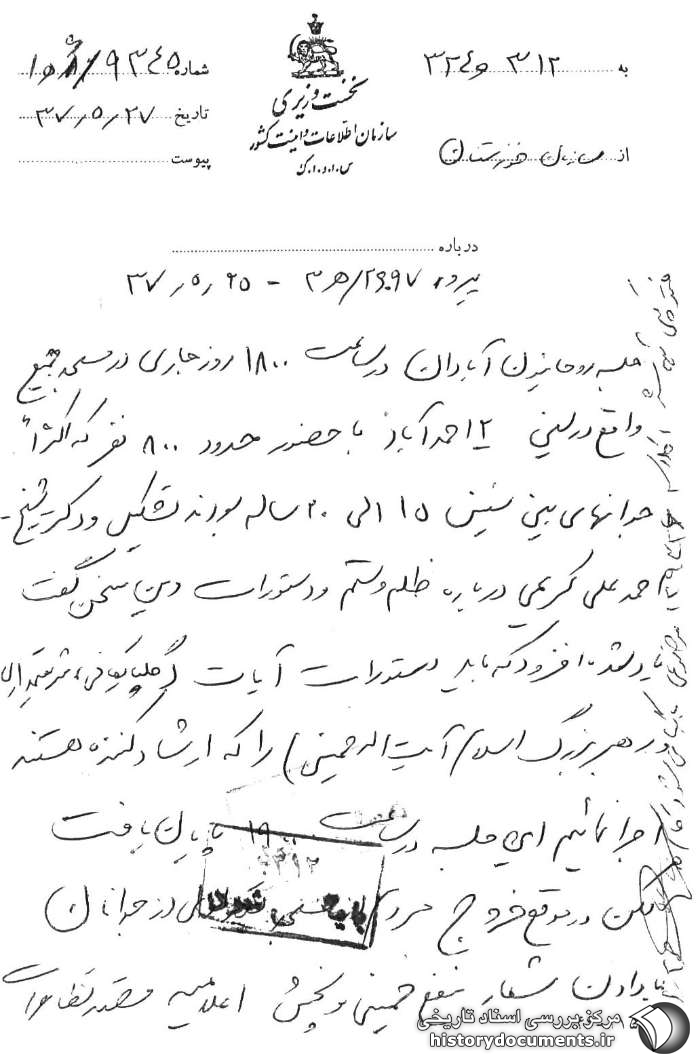 به ۳۱۲ و ۳۲۴
شماره ۹۳۴۵/ ۱۰ﻫ
نخست وزیری
تاریخ ۳۷،۵،۲۷
سازمان اطلاعات و امنیت کشور
از سازمان خوزستان
پیوست
س.ا.و.ا.ک
درباره
پیرو ۲۶۰۹۷/ﻫ۳ - ۳۷،۵،۲۵
جلسه روحانیون آبادان در ساعت ۱۸۰۰ روز جاری در مسجد
واقع در لین ۱۲ احمدآباد با حضور حدود ۸۰۰ نفر که اکثراً
جوانهای بین سنین ۱۵ الی ۲۰ ساله بودند تشکیل و دکتر شیخ-
احمد علی کریمی درباره ظلم و ستم و دستورات دین سخن گفت
یادشده افزود که باید دستورات آیات (گلپایگانی، شریعتمداری
و رهبر بزرگ اسلام آیت اله خمینی) را که ارشاد کننده هستند
اجرا نمائیم این جلسه در ساعت ۱۹۰۰ پایان یافت
لکن در موقع خروج مردم از جوانان
با دادن شعار بنفع خمینی و پخش اعلامیه قصد تظاهرات
۳۱۲
بایگانی شود
مرکز بررسی اسناد تاریخی
historydocuments.ir